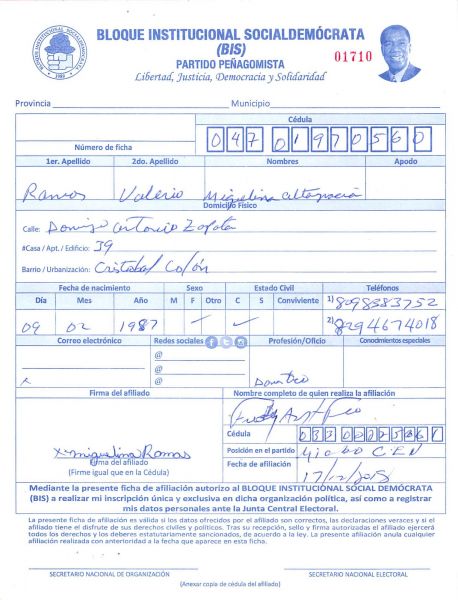 BLOQUE INSTITUCIONAL SOCIALDEMÓCRATA
(BIS)
PARTIDO PEÑAGOMISTA
Libertad, Justicia, Democracia y Solidaridad
01710
Provincia Municipio
Cédula
Número de ficha 047 0197056 0
1er. Apellido 2do. Apellido Nombres Apodo
Ramos Valerio Miguelina altagracia
Domicilio Físico
Calle: Domingo antonio Zapata
#Casa / Apt. / Edificio: 39
Barrio / Urbanización: Cristobal Colón
Fecha de nacimiento Sexo Estado Civil Teléfonos
Día Mes Año M F Otro C S Conviviente 1) 8098383752
09 02 1987 ✓ ✓ 2) 8294674018
Correo electrónico Redes sociales Profesión/Oficio Conocimientos especiales
@
@
x @
Firma del afiliado Nombre completo de quien realiza la afiliación
Cédula
x miguelina Ramos Posición en el partido
Firma del afiliado
(Firme igual que en la Cédula) Fecha de afiliación 17/12/2015
Mediante la presente ficha de afiliación autorizo al BLOQUE INSTITUCIONAL SOCIAL DEMÓCRATA
(BIS) a realizar mi inscripción única y exclusiva en dicha organización política, así como a registrar
mis datos personales ante la Junta Central Electoral.
La presente ficha de afiliación es válida si los datos ofrecidos por el afiliado son correctos, las declaraciones veraces y si el
afiliado tiene el disfrute de sus derechos civiles y políticos. Tras su recepción, sello y firma autorizados el afiliado ejercerá
todos los derechos y los deberes estatutariamente sancionados, de acuerdo a la ley. La presente afiliación anula cualquier
afiliación realizada con anterioridad a la fecha que aparece en esta ficha.
SECRETARIO NACIONAL DE ORGANIZACIÓN SECRETARIO NACIONAL ELECTORAL
(Anexar copia de cédula del afiliado)